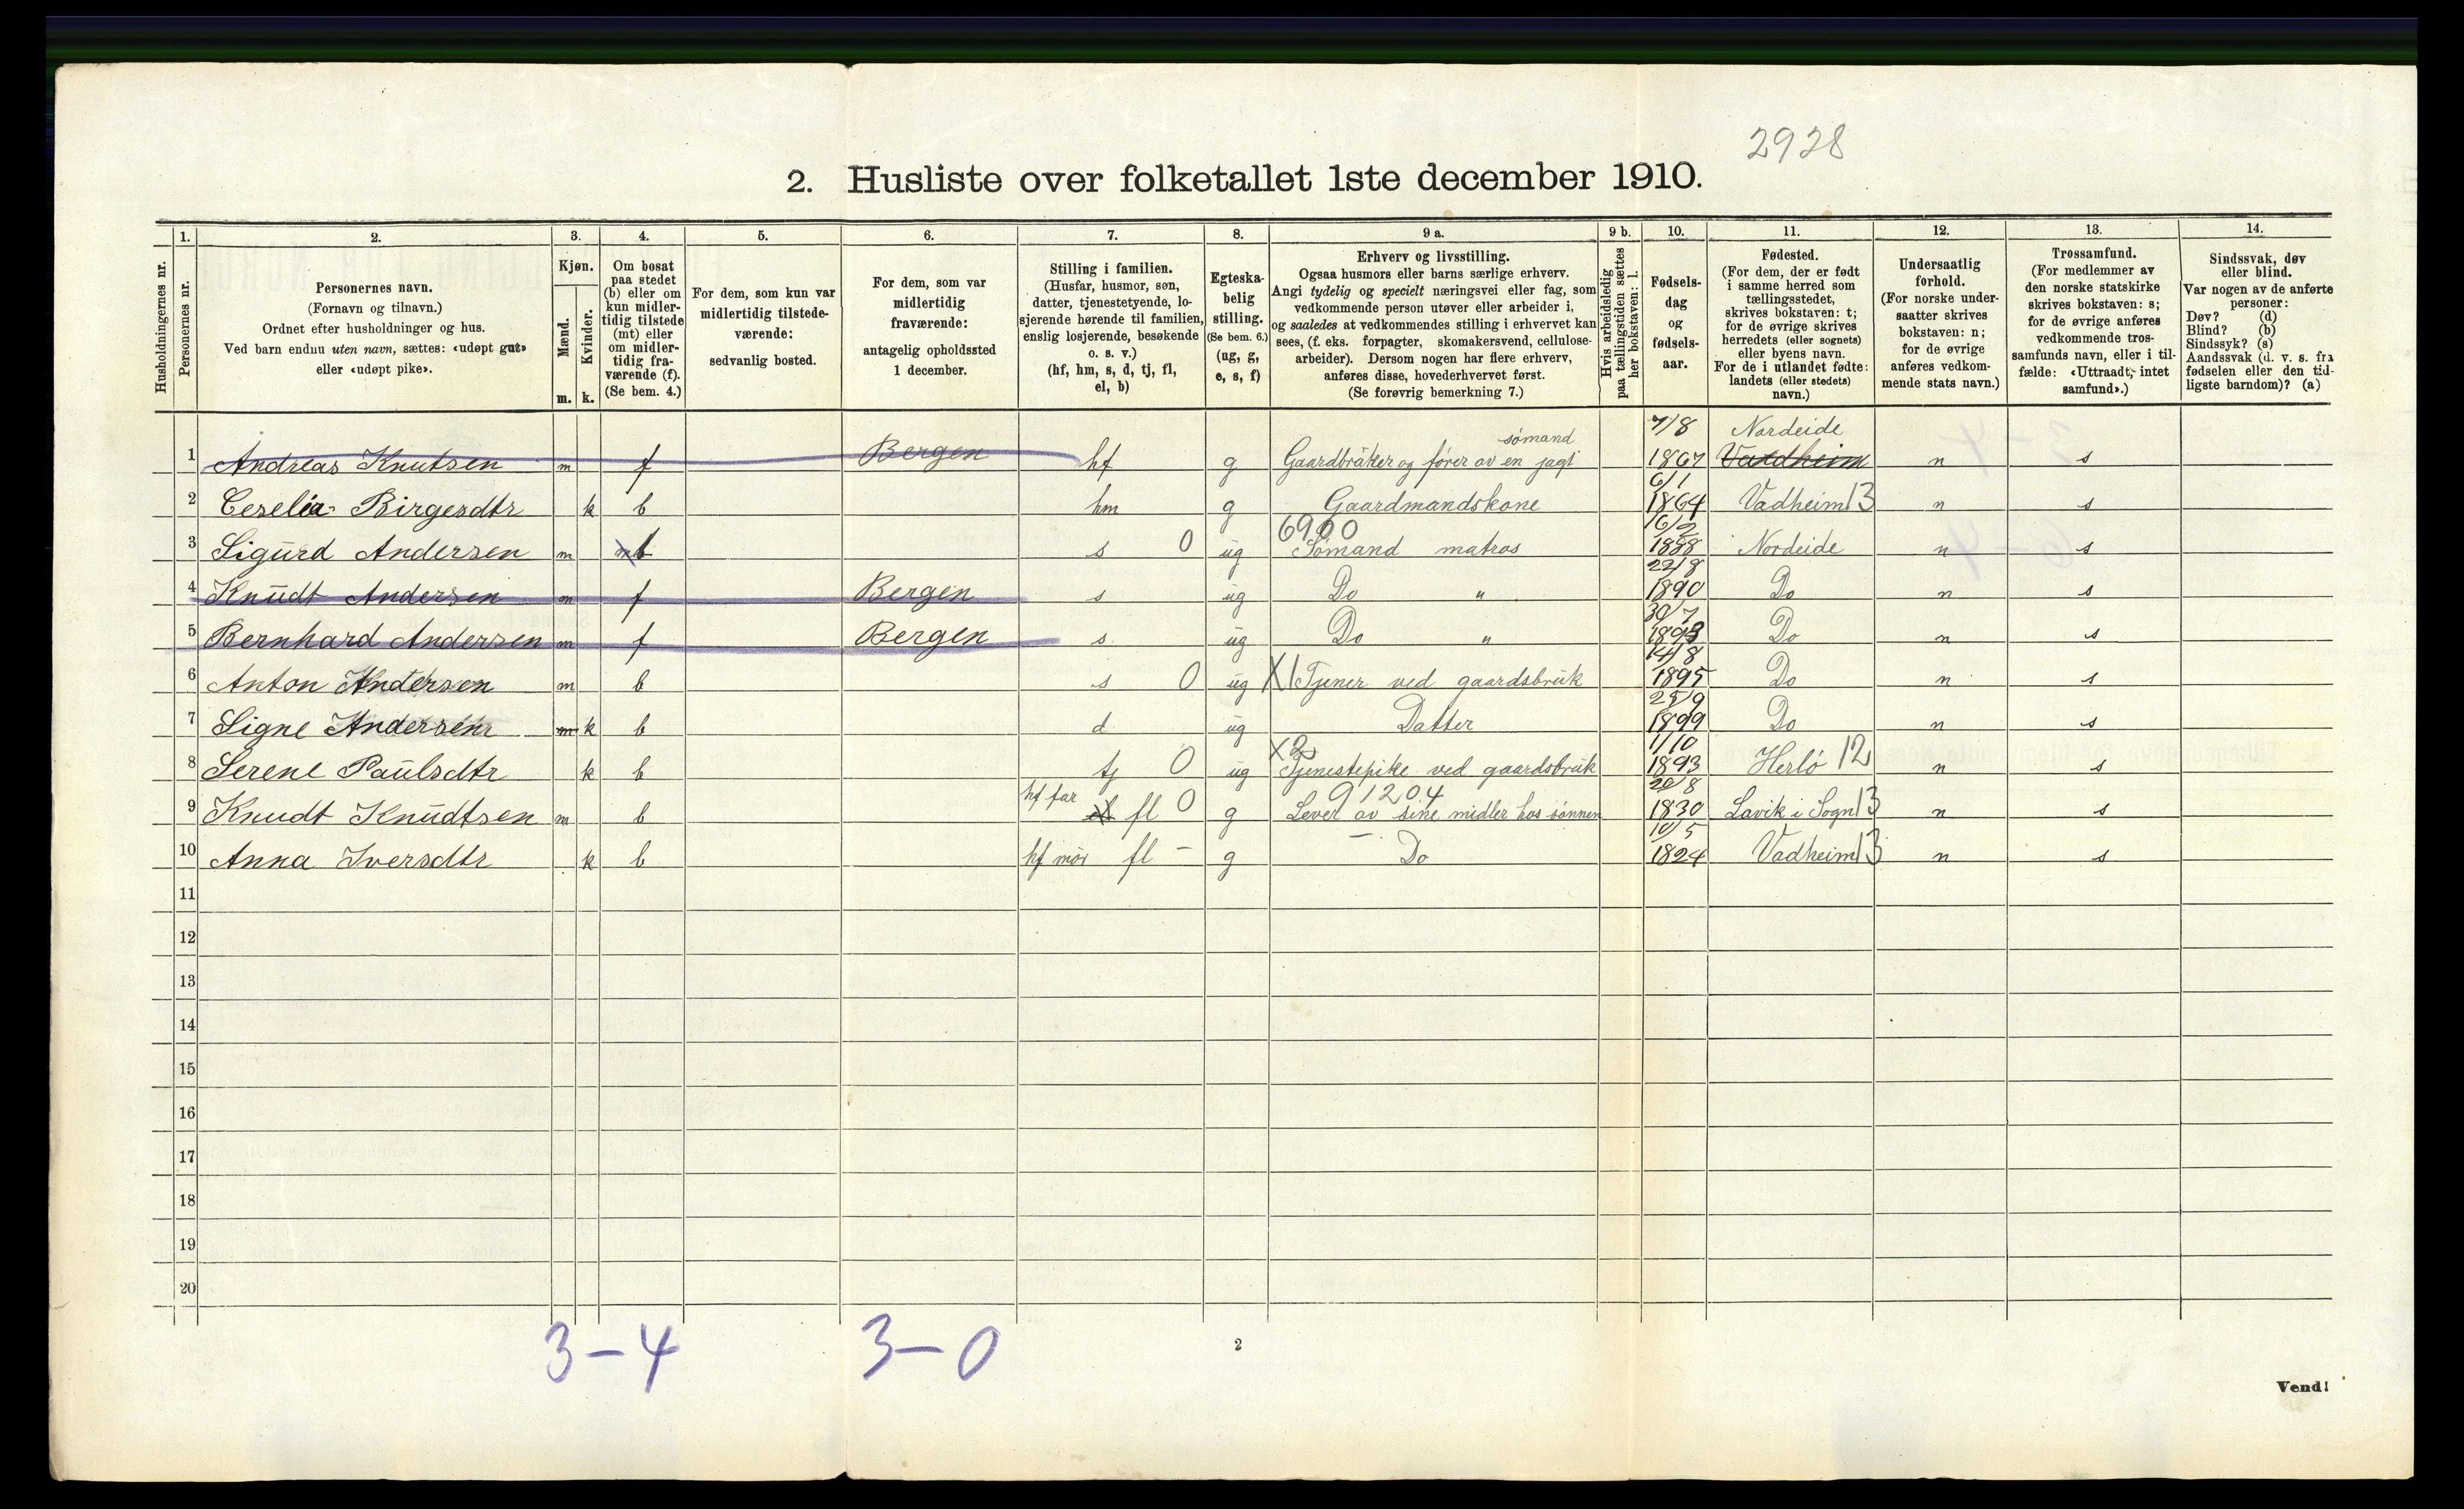 2928
2. Husliste over folketallet 1ste december 1910.
Husholdningernes nr.
1. Personernes nr.
2. Personernes navn. (Fornavn og tilnavn.) Ordnet efter husholdninger og hus. Ved barn endnu uten navn, sættes: «udøpt gut» eller «udøpt pike».
3. Kjøn. Mænd. m. Kvinder. k.
4. Om bosat paa stedet (b) eller om kun midlertidig tilstede (mt) eller om midlertidig fraværende (f). (Se bem. 4.)
5. For dem, som kun var midlertidig tilstedeværende: sedvanlig bosted.
6. For dem, som var midlertidig fraværende: antagelig opholdssted 1 december.
7. Stilling i familien. (Husfar, husmor, søn, datter, tjenestetyende, losjerende hørende til familien, enslig losjerende, besøkende o. s. v.) (hf, hm, s, d, tj, fl, el, b)
8. Egteskabelig stilling. (Se bem. 6.) (ug, g, e, s, f)
9 a. Erhverv og livsstilling. Ogsaa husmors eller barns særlige erhverv. Angi tydelig og specielt næringsvei eller fag, som vedkommende person utøver eller arbeider i, og saaledes at vedkommendes stilling i erhvervet kan sees, (f. eks. forpagter, skomakersvend, cellulosearbeider). Dersom nogen har flere erhverv, anføres disse, hovederhvervet først. (Se forøvrig bemerkning 7.)
9 b. Hvis arbeidsledig paa tællingstiden sættes her bokstaven: l.
10. Fødselsdag og fødselsaar.
11. Fødested. (For dem, der er født i samme herred som tællingsstedet, skrives bokstaven: t; for de øvrige skrives herredets (eller sognets) eller byens navn. For de i utlandet fødte: landets (eller stedets) navn.)
12. Undersaatlig forhold. (For norske undersaatter skrives bokstaven: n; for de øvrige anføres vedkommende stats navn.)
13. Trossamfund. (For medlemmer av den norske statskirke skrives bokstaven: s; for de øvrige anføres vedkommende trossamfunds navn, eller i tilfælde: «Uttraadt, intet samfund».)
14. Sindssvak, døv eller blind. Var nogen av de anførte personer: Døv? (d) Blind? (b) Sindssyk? (s) Aandssvak (d. v. s. fra fødselen eller den tidligste barndom)? (a)
1 Andreas Knutsen m f Bergen hf g Gaardbrüker og fører av en jagt sømand 7/8 1867 Nordeide Vardheim n s
2 Ceselia Birgesdtr k b hm g Gaardmandskone 6/1 1864 Vadheim 13 n s
3 Sigurd Andersen m b s 0 ug 6900 Sømand matros 16/2 1888 Nordeide n s
4 Knudt Andersen m f Bergen s ug Do " 22/8 1890 Do n s
5 Bernhard Andersen m f Bergen s ug Do " 30/7 1893 Do n s
6 Anton Andersen m b s 0 ug X1 Tjener ved gaardsbruk 14/8 1895 Do n s
7 Signe Andersen m k b d ug Datter 25/9 1899 Do n s
8 Serene Paulsdtr k b tj 0 ug X2 Tjenestepike ved gaardsbruk 1/10 1893 Herlø 12 n s
9 Knudt Knudtsen m b hf far el fl 0 g 91204 Lever av sine midler hos sønnen 20/8 1830 Lavik i Sogn 13 n s
10 Anna Iversdtr k b hf mor fl - g Do 10/5 1824 Vadheim 13 n s
11
12
13
14
15
16
17
18
19
20
3-4 3-0
2
Vend!